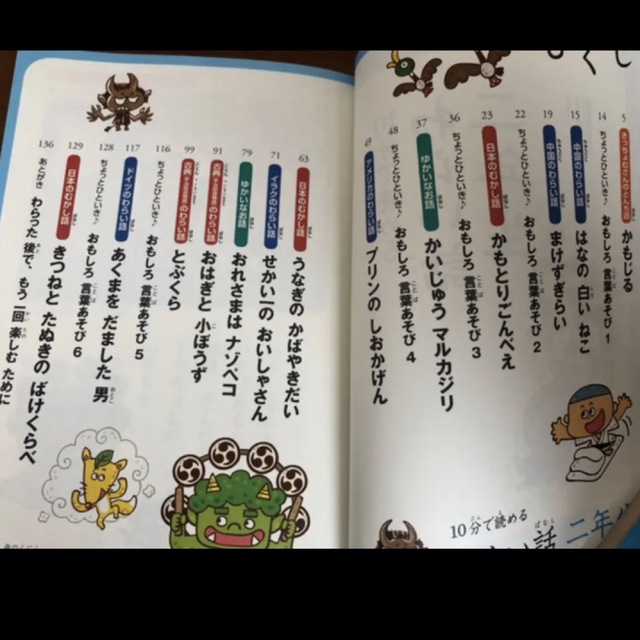 きっちょむさんのとんち話
5 かもじる
14 ちょっとひといき♪ おもしろ 言葉あそび 1
15 中国のわらい話 はなの 白い ねこ
19 中国のわらい話 まけずぎらい
22 ちょっとひといき♪ おもしろ 言葉あそび 2
23 日本のむかし話 かもとりごんべえ
36 ちょっとひといき♪ おもしろ 言葉あそび 3
37 ゆかいなお話 かいじゅう マルカジリ
48 ちょっとひといき♪ おもしろ 言葉あそび 4
49 アメリカのわらい話 プリンの しおかげん
10分で読める
話 二年
63 日本のむかし話 うなぎの かばやきだい
71 イラクのわらい話 せかい一の おいしゃさん
79 ゆかいなお話 おれさまは ナゾベコ
91 古典のわらい話 おはぎと 小ぼうず
99 古典のわらい話 とぶくら
116 ちょっとひといき♪ おもしろ 言葉あそび 5
117 ドイツのわらい話 あくまを だました 男
128 ちょっとひといき♪ おもしろ 言葉あそび 6
129 日本のむかし話 きつねと たぬきの ばけくらべ
136 あとがき わらった 後で、もう 一回 楽しむ ために